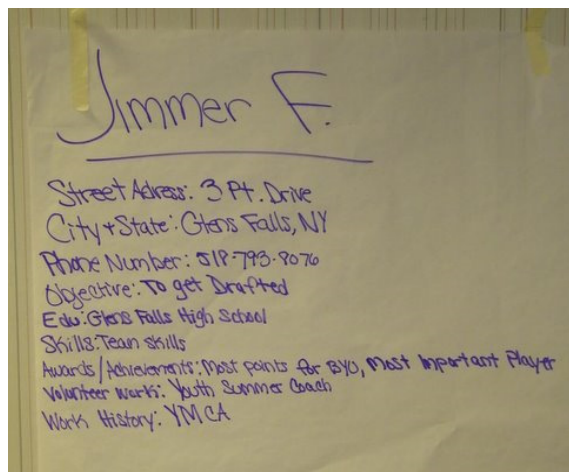 Jimmer F.
Street Adress: 3 Pt. Drive
City + State: Glens Falls, NY
Phone Number: 518-793-8076
Objective: To get Drafted
Edu: Glens Falls High School
Skills: Team skills
Awards/Achievements: Most points for BYU, Most Important Player
Volunteer work: Youth Summer Coach
Work History: YMCA